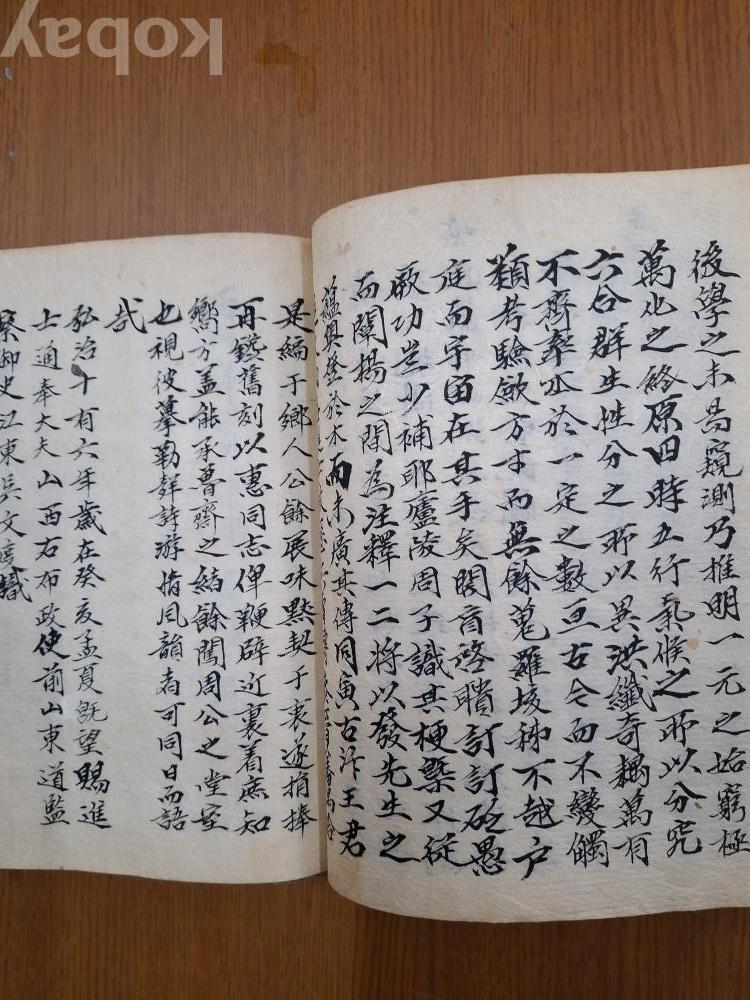 kobay
後學之未易窺測乃推明一元之始窮極
萬化之終原四時五行氣候之所以分究
六合群生性分之所以異洪纖奇耦萬有
不齊率囿於一定之數亘古今而不變觸
類考驗歛方寸而無餘蒐羅垓秭不越戶
庭而宇宙在其手矣開盲啓聵訂訂砭愚
厥功豈少補耶廬陵周子識其梗槩又從
而闡揚之間為注釋一二將以發先生之
蘊奧鋟於木而未廣其傳同寅古汴王君
是編于鄉人公餘展味默契于衷遂捐捧
再鋟舊刻以惠同志俾鞭辟近裏着庶知
嚮方盖能承魯齋之緒餘闖周公之堂室
也視彼摹勒群詩游情風韻者可同日而語
哉
弘治十有六年歲在癸亥孟夏既望賜進
士通奉大夫山西右布政使前山東道監
察御史江東吳文識